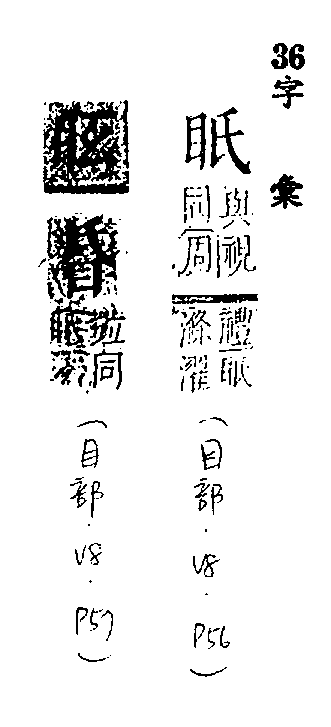 36字彙
眂
與視
同周
禮眂
滌濯
(目部.V8.P56)
並同
(目部.V8.P57)